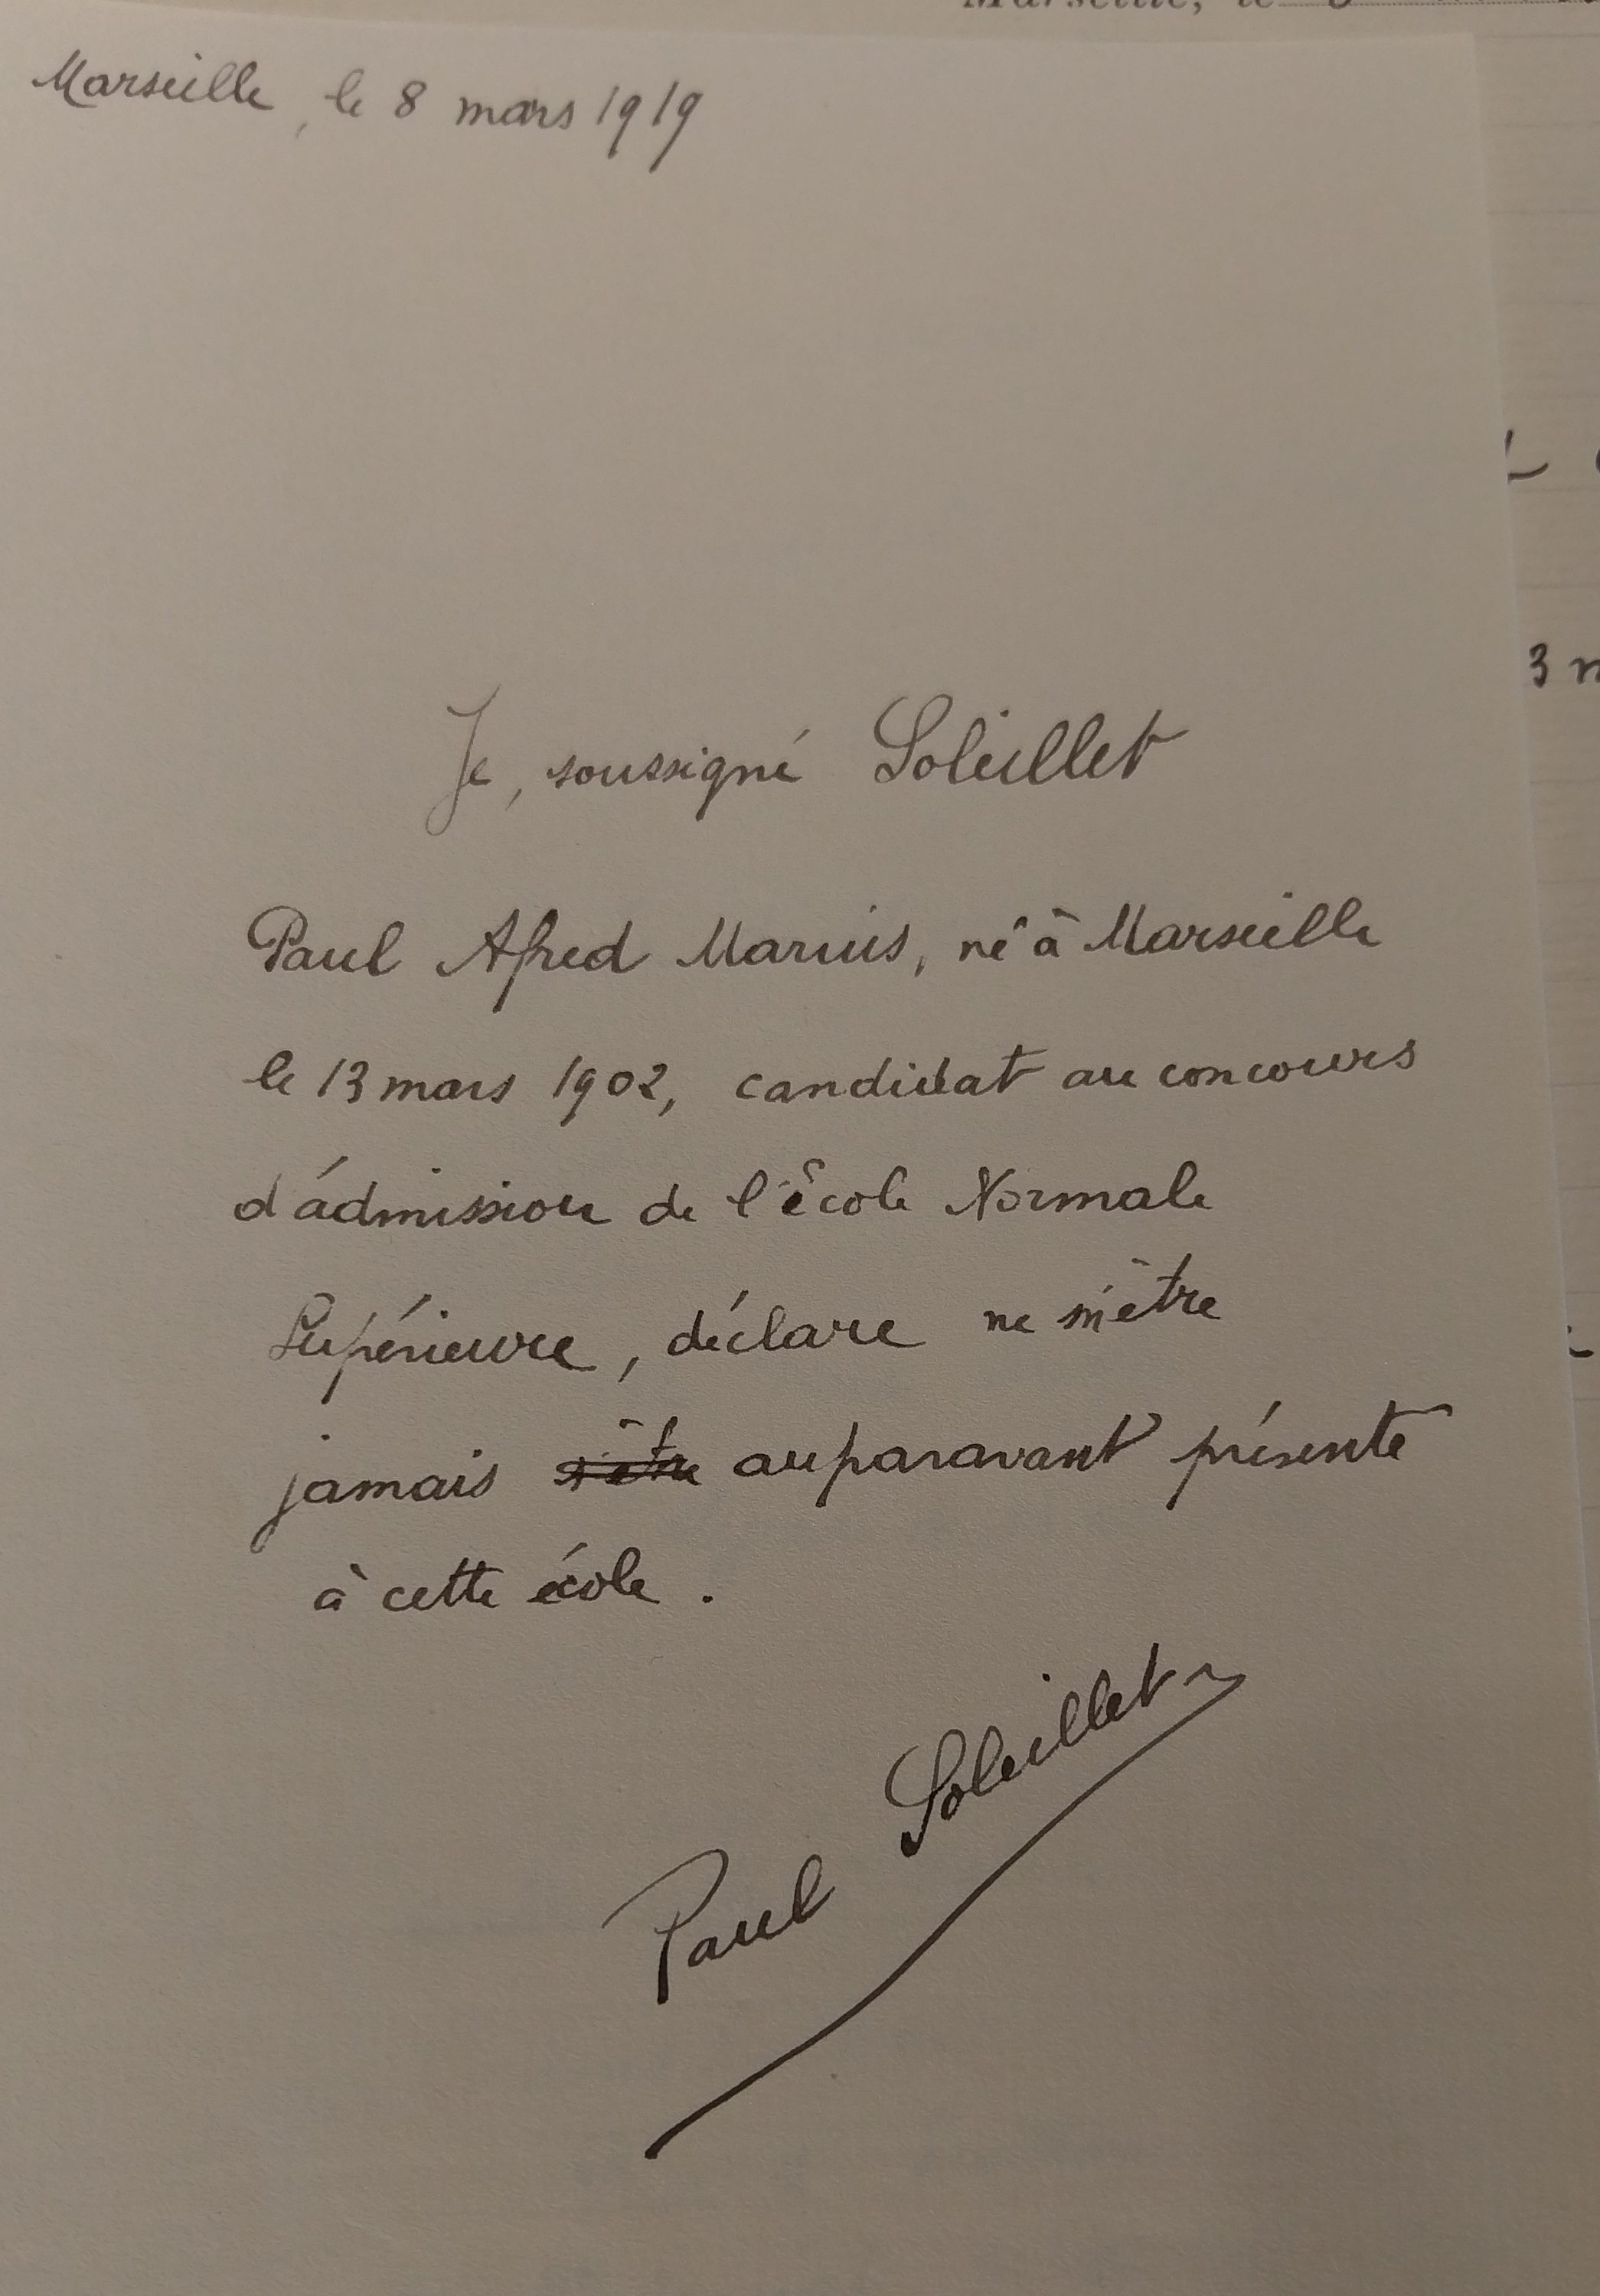 Marseille, le 8
Marseille, le 8 mars 1919
Je, soussigné Soleillet
Paul Afred Marius, né à Marseille
le 13 mars 1902, candidat au concours
d'admission de l'école Normale
Supérieure, déclare ne m'être
jamais s'être auparavant présenté
à cette école.
3 m
Paul Soleillet